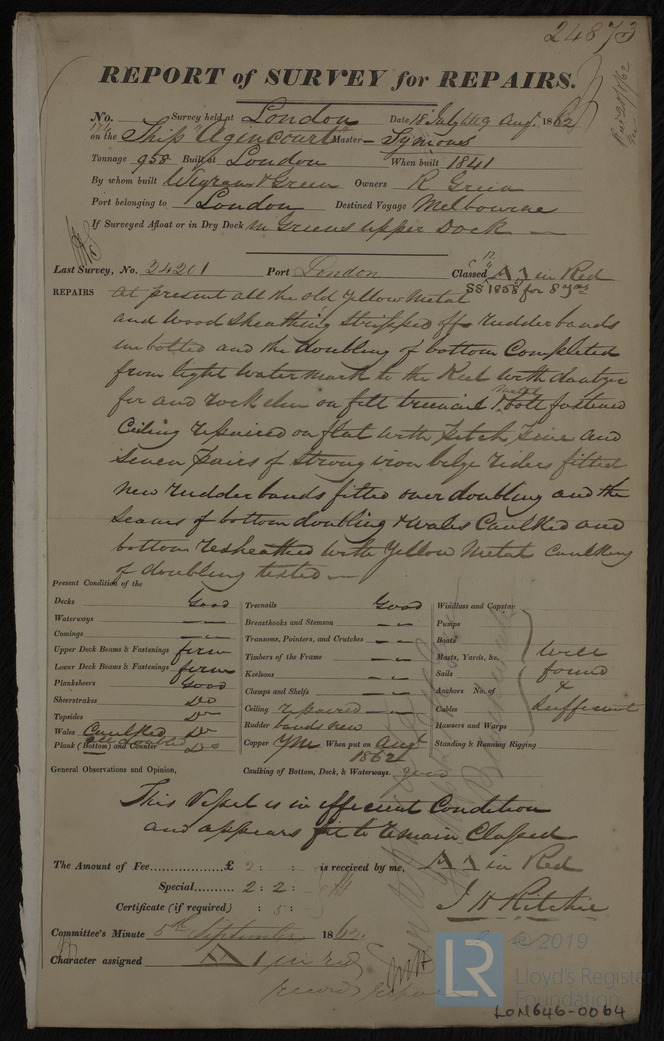 24873
REPORT of SURVEY for REPAIRS.
No. Survey held at London Date, 15 July to 9 Augt. 1862
on the Ship "Agincourt" Master Symons
Tonnage 958 Built at London When built 1841
By whom built Wigram & Green Owners R Green
Port belonging to London Destined Voyage Melbourne
If Surveyed Afloat or in Dry Dock In Greens Upper Dock
Last Survey, No. 24201 Port London Classed A1 in Red
SS 1858 for 8 yrs
REPAIRS At present all the old Yellow Metal
and wood sheathing stripped off rudder bands
unbolted and the doubling of bottom Completed
from light water mark to the Keel with
fir and rock elm on felt treenail & metal bolt fastened
Ceiling repaired on flat with Pitch Pine and
Seven Pairs of Strong iron bilge riders fitted
New rudder bands fitted over doubling and the
seams of bottom doubling & wales Caulked and
bottom resheathed with Yellow Metal Caulking
of doubling tested
Present Condition of the
Decks Good
Waterways " "
Comings " "
Upper Deck Beams & Fastenings firm
Lower Deck Beams & Fastenings firm
Planksheers Good
Sheerstrakes Do
Topsides Do
Wales Caulked Do
Plank (Bottom) and Counter all doubled Do
Treenails Good
Breasthooks and Stemson " "
Transoms, Pointers, and Crutches " "
Timbers of the Frame " "
Keelsons " "
Clamps and Shelfs " "
Ceiling repaired " "
Rudder bands new
Copper YM When put on Augt
1862
Windlass and Capstan
Pumps
Boats
Masts, Yards, &c.
Sails
Anchors No. of
Cables
Hawsers and Warps
Standing & Running Rigging
Well
found
&
Sufficient
General Observations and Opinion, Caulking of Bottom, Deck, & Waterways. good
This Vessel is in efficient Condition
and appears fit to remain Classed
A1 in Red
The Amount of Fee £ 2 : : is received by me,
Special 2 : 2 :
Certificate (if required) : 5 :
J H Ritchie
Committee's Minute 5th September 1862
Character assigned A1 in red
© 2019
LR
Lloyd's Register
Foundation
LON646-0064